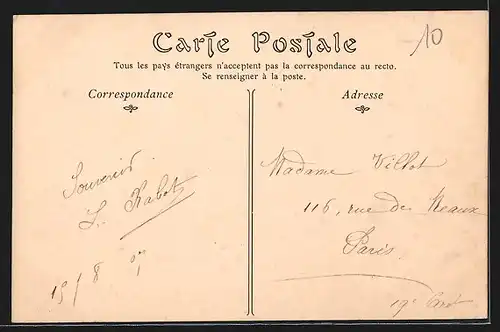 Carte Postale
10
Tous les pays étrangers n'acceptent pas la correspondance au recto.
Se renseigner à la poste.
Correspondance
Adresse
Souvenir
L. Rabot
15/8 07
Madame Villot
116, rue de Meaux
Paris
19e Arrt